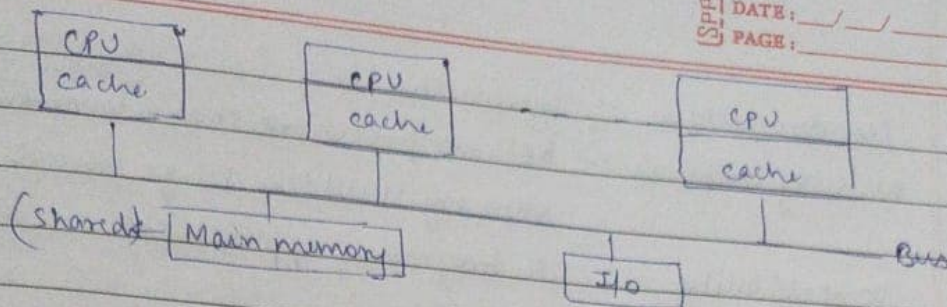 DATE: __/__/__
PAGE:
CPU
cache
CPU
cache
CPU
cache
(shared)
Main memory
I/O
Bus